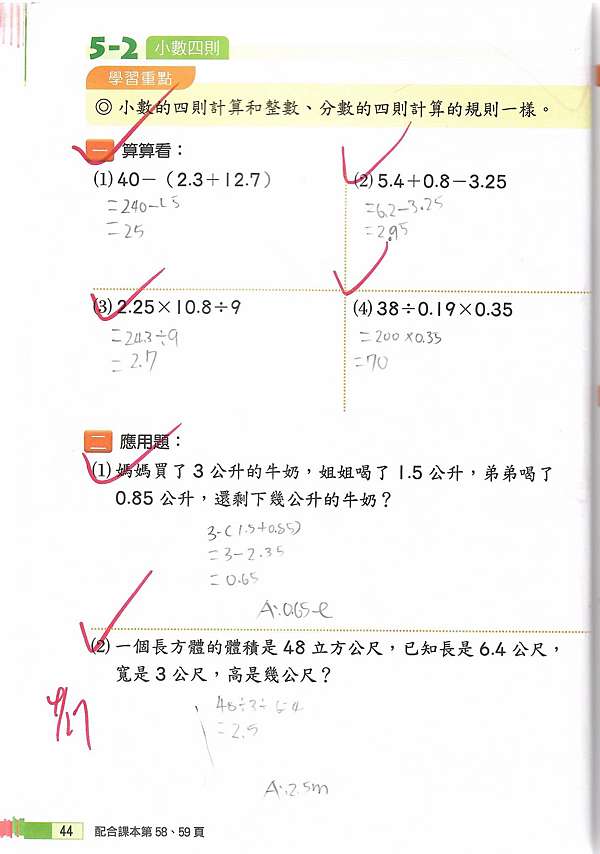 5-2 小數四則
學習重點
◎ 小數的四則計算和整數、分數的四則計算的規則一樣。
一 算算看：
(1) 40－（2.3＋12.7）
=240-15
=25
(2) 5.4＋0.8－3.25
=6.2-3.25
=2.95
(3) 2.25×10.8÷9
=24.3÷9
=2.7
(4) 38÷0.19×0.35
=200×0.35
=70
二 應用題：
(1) 媽媽買了 3 公升的牛奶，姐姐喝了 1.5 公升，弟弟喝了
0.85 公升，還剩下幾公升的牛奶？
3-(1.5+0.85)
=3-2.35
=0.65
A:0.65ℓ
(2) 一個長方體的體積是 48 立方公尺，已知長是 6.4 公尺，
寬是 3 公尺，高是幾公尺？
48÷3÷6.4
=2.5
A:2.5m
4/27
44 配合課本第 58、59 頁